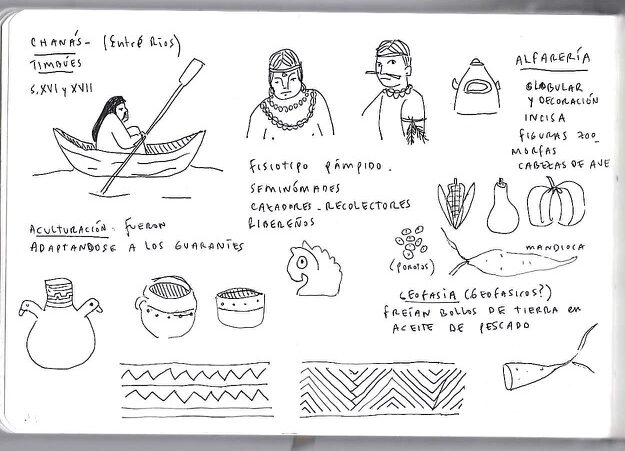 CHANÁS- (Entré Ríos)
TIMBÚES
S.XVI y XVII
ALFARERÍA
GLOBULAR
Y DECORACIÓN
INCISA
FIGURAS ZOO-
MORFAS
CABEZAS DE AVE
FISIOTIPO PÁMPIDO.
SEMINÓMADES
CAZADORES-RECOLECTORES
RIBEREÑOS
ACULTURACIÓN. FUERON
ADAPTANDOSE A LOS GUARANÍES
(POROTOS)
MANDIOCA
GEOFASIA (GEOFASICOS?)
FREÍAN BOLLOS DE TIERRA en
ACEITE DE PESCADO